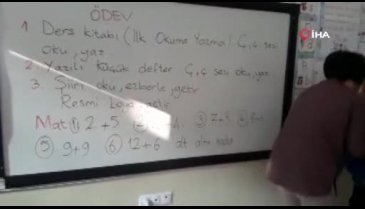 İHA
ÖDEV
1 Ders kitabı (İlk Okuma Yazma) Ç,ç sesi
oku, yaz.
2. Yazılı küçük defter Ç,ç sesi oku, yaz
3. Şiiri oku, ezberle, getir
Resmi
Mat: ① 2+5 ② ③ ④
⑤ 9+9 ⑥ 12+6 alt alta